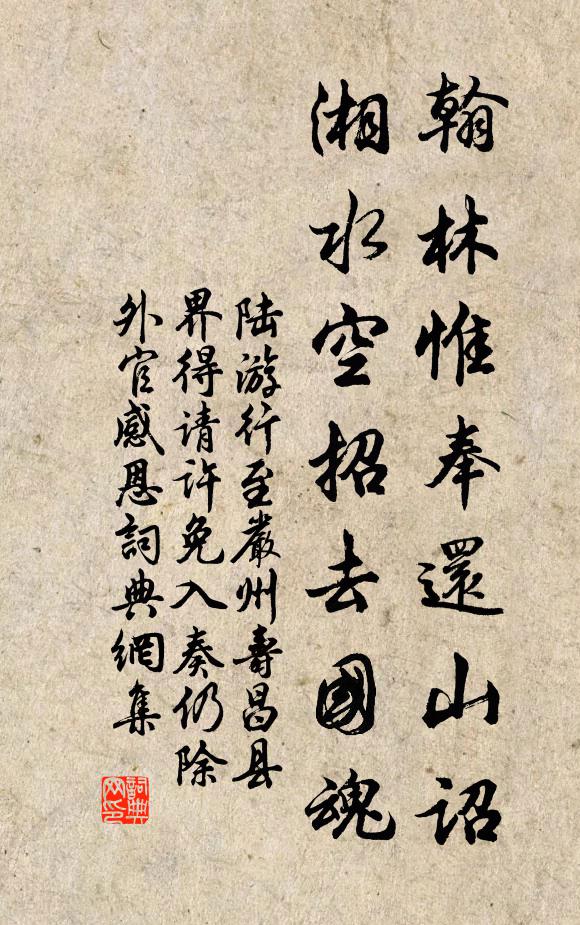 翰林惟奉還山詔
湘水空招去國魂
陆游行至嚴州壽昌县
界得请许免入奏仍除
外官感恩詞典網集
詞典
网印